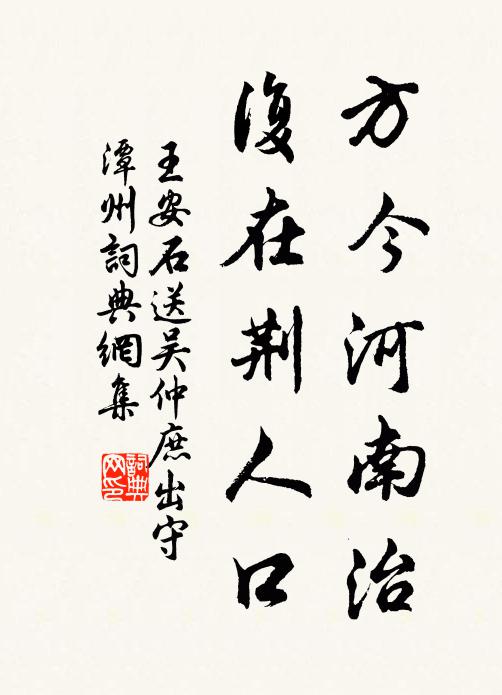 方今河南治
復在荆人口
王安石送吴仲庶出守
潭州詞典網集
詞典網印